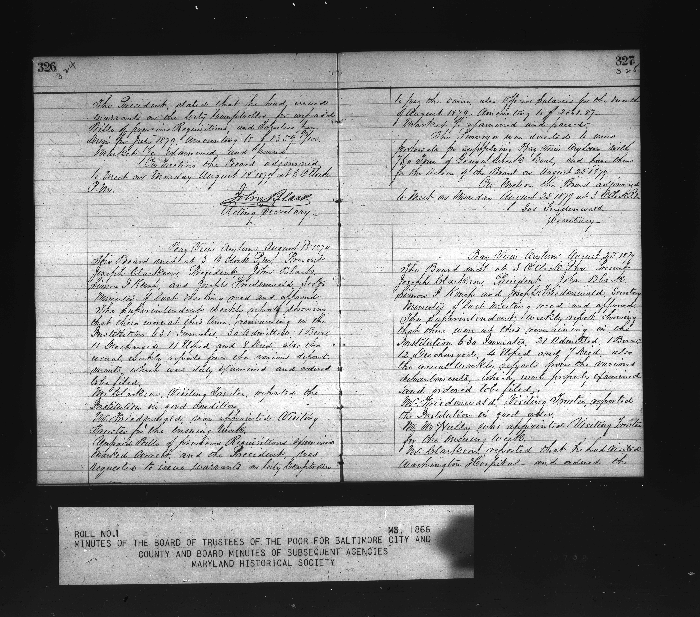 326
324
The President, stated that he had, issued
warrants on the City Comptroller for unpaid
Bills of previous Requisitions, and
for July 1879, amounting to
which to Examined and passed
On motion the Board adjourned
to meet on Monday August 18" 1879 at 3 O'Clock
P.M.
John Black
Acting Secretary
Bay View Asylum August 18" 1879
The Board met at 3 O'Clock P.M. Present
Joseph Clarkson President, John Black,
Simon I Kemp, and Joseph Friedenwald, Sect'y
Minutes of last Meeting read and approved
The Superintendents Weekly report showing
that there were at this time, remaining in the
Institution 631 Inmates, Admitted, 1 Born
11 Discharged 11 Eloped and 8 Died, also the
usual weekly reports from the various depart
ments, which was duly examined and ordered
to be filed,
Mr. Clarkson, Visiting Trustee, reported the
Institution in good condition,
Mr. Friedenwald, was appointed Visiting
Trustee for the ensuing Week,
Unpaid Bills of previous Requisitions
marked Correct, and the President, was
requested to issue warrants on City Comptroller
327
325
to pay the same, also Officers Salaries for the month
of August 1879, Amounting to $
Marked Examined and passed
The was directed to
for supplying Bay View Asylum with
Tons of Coal, and have them
for the action of the Board on August 25" 1879
On Motion the Board adjourned
to Meet on Monday August 25" 1879 at 3 O'Clock P.M.
Jos Friedenwald
Secretary
Bay View Asylum August 25" 1879
The Board met at 3 O'Clock P.M. Present
Joseph Clarkson President John Black
Simon I Kemp and Joseph Friedenwald, Secretary
Minutes of Last Meeting read and approved
The Superintendents, Weekly report showing
that there were at this time remaining in the
Institution 630 Inmates, 21 Admitted, 1 Born
12 Discharged, 4 Eloped and 7 Died, also
the usual Weekly reports from the various
departments, which were properly examined
and ordered to be filed,
Mr. Friedenwald Visiting Trustee reported
the Institution in good order,
Mr. was appointed Visiting Trustee
for the ensuing Week
Mr. Clarkson reported that he had visited
Washington Hospital and ordered the
ROLL NO.1 MS. 1866
MINUTES OF THE BOARD OF TRUSTEES OF THE POOR FOR BALTIMORE CITY AND
COUNTY AND BOARD MINUTES OF SUBSEQUENT AGENCIES
MARYLAND HISTORICAL SOCIETY